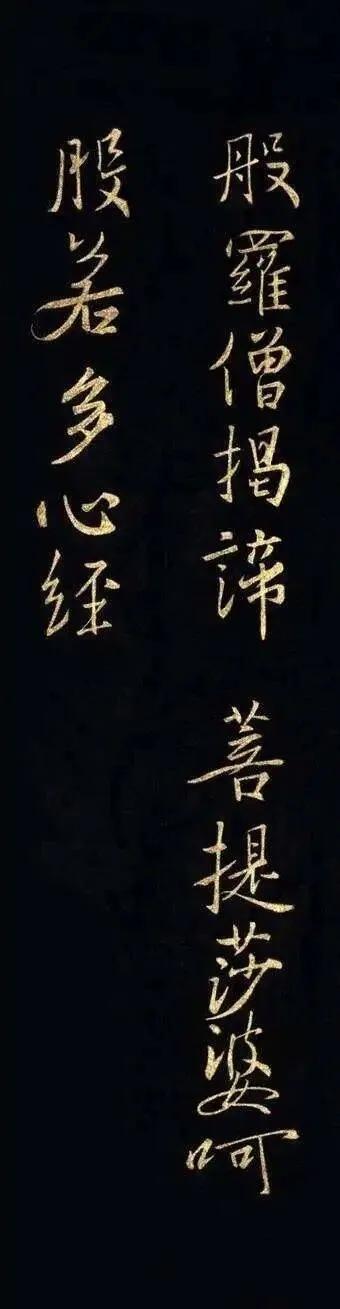 般羅僧揭諦 菩提莎婆呵
般若多心經